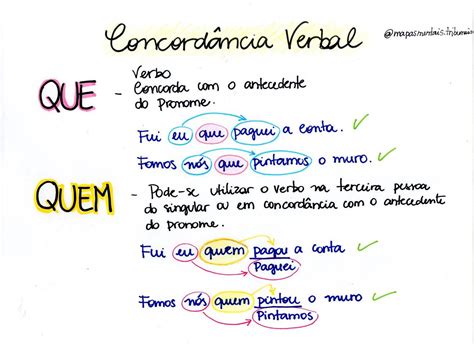 Concordância Verbal
@mapasmentais.tribunais
QUE
Verbo
- Concorda com o antecedente
do pronome.
Fui eu que paguei a conta.
Fomos nós que pintamos o muro.
QUEM
- Pode-se utilizar o verbo na terceira pessoa
do singular ou em concordância com o antecedente
do pronome.
Fui eu quem pagou a conta
Paguei
Fomos nós quem pintou o muro
Pintamos